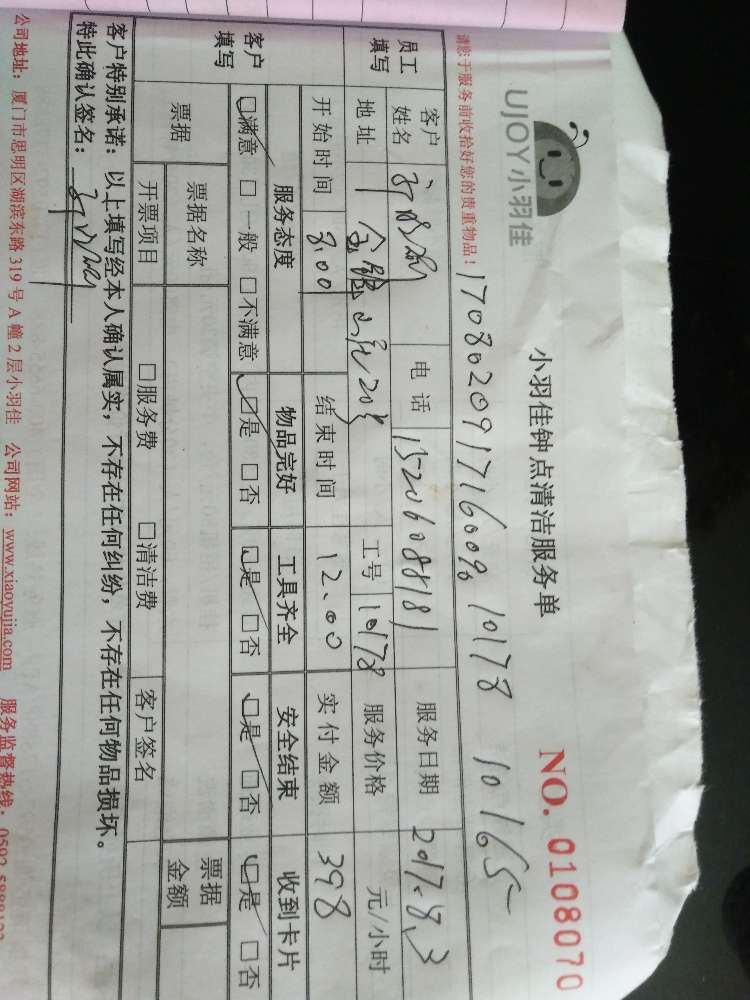 UJOY小羽佳
小羽佳钟点清洁服务单
NO. 0108070
请您于服务前收拾好您的贵重物品！
1708020917160096 10178 10165
员工填写 客户姓名 电话 15206088181 服务日期 2017.8.3
地址 工号 10178 服务价格 元/小时
开始时间 8.00 结束时间 12.00 实付金额 398
客户填写 服务态度 物品完好 工具齐全 安全结束 收到卡片
☑满意 □一般 □不满意 ☑是 □否 ☑是 □否 ☑是 □否 ☑是 □否
票据 票据名称 票据金额
开票项目 □服务费 □清洁费 客户签名
客户特别承诺：以上填写经本人确认属实，不存在任何纠纷，不存在任何物品损坏。
特此确认签名：
公司地址：厦门市思明区湖滨东路319号A幢2层小羽佳 公司网站：www.xiaoyujia.com 服务监督热线：0592